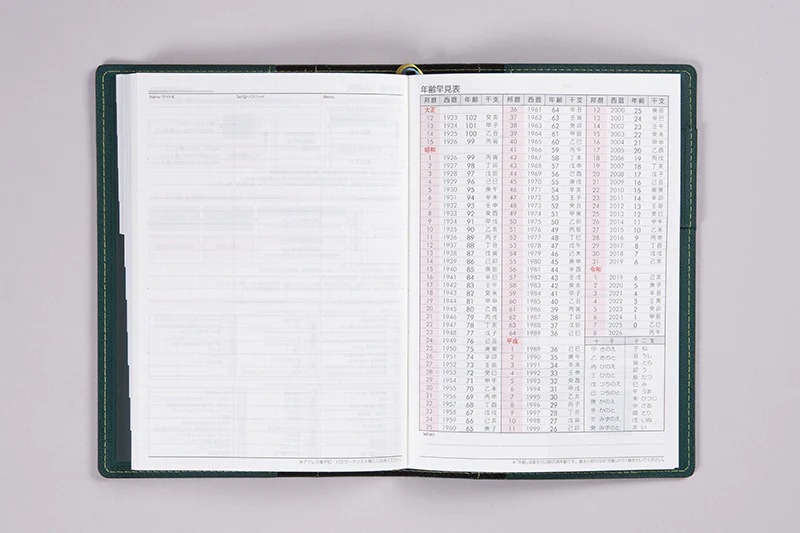 Memo
年齢早見表
邦暦 西暦 年齢 干支
大正
12 1923 102 癸亥
13 1924 101 甲子
14 1925 100 乙丑
15 1926 99 丙寅
昭和
1 1926 99 丙寅
2 1927 98 丁卯
3 1928 97 戊辰
4 1929 96 己巳
5 1930 95 庚午
6 1931 94 辛未
7 1932 93 壬申
8 1933 92 癸酉
9 1934 91 甲戌
10 1935 90 乙亥
11 1936 89 丙子
12 1937 88 丁丑
13 1938 87 戊寅
14 1939 86 己卯
15 1940 85 庚辰
16 1941 84 辛巳
17 1942 83 壬午
18 1943 82 癸未
19 1944 81 甲申
20 1945 80 乙酉
21 1946 79 丙戌
22 1947 78 丁亥
23 1948 77 戊子
24 1949 76 己丑
25 1950 75 庚寅
26 1951 74 辛卯
27 1952 73 壬辰
28 1953 72 癸巳
29 1954 71 甲午
30 1955 70 乙未
31 1956 69 丙申
32 1957 68 丁酉
33 1958 67 戊戌
34 1959 66 己亥
35 1960 65 庚子
邦暦 西暦 年齢 干支
36 1961 64 辛丑
37 1962 63 壬寅
38 1963 62 癸卯
39 1964 61 甲辰
40 1965 60 乙巳
41 1966 59 丙午
42 1967 58 丁未
43 1968 57 戊申
44 1969 56 己酉
45 1970 55 庚戌
46 1971 54 辛亥
47 1972 53 壬子
48 1973 52 癸丑
49 1974 51 甲寅
50 1975 50 乙卯
51 1976 49 丙辰
52 1977 48 丁巳
53 1978 47 戊午
54 1979 46 己未
55 1980 45 庚申
56 1981 44 辛酉
57 1982 43 壬戌
58 1983 42 癸亥
59 1984 41 甲子
60 1985 40 乙丑
61 1986 39 丙寅
62 1987 38 丁卯
63 1988 37 戊辰
64 1989 36 己巳
平成
1 1989 36 己巳
2 1990 35 庚午
3 1991 34 辛未
4 1992 33 壬申
5 1993 32 癸酉
6 1994 31 甲戌
7 1995 30 乙亥
8 1996 29 丙子
9 1997 28 丁丑
10 1998 27 戊寅
11 1999 26 己卯
邦暦 西暦 年齢 干支
12 2000 25 庚辰
13 2001 24 辛巳
14 2002 23 壬午
15 2003 22 癸未
16 2004 21 甲申
17 2005 20 乙酉
18 2006 19 丙戌
19 2007 18 丁亥
20 2008 17 戊子
21 2009 16 己丑
22 2010 15 庚寅
23 2011 14 辛卯
24 2012 13 壬辰
25 2013 12 癸巳
26 2014 11 甲午
27 2015 10 乙未
28 2016 9 丙申
29 2017 8 丁酉
30 2018 7 戊戌
31 2019 6 己亥
令和
1 2019 6 己亥
2 2020 5 庚子
3 2021 4 辛丑
4 2022 3 壬寅
5 2023 2 癸卯
6 2024 1 甲辰
7 2025 0 乙巳
8 2026 丙午
十干 十二支
甲 きのえ 子 ね
乙 きのと 丑 うし
丙 ひのえ 寅 とら
丁 ひのと 卯 う
戊 つちのえ 辰 たつ
己 つちのと 巳 み
庚 かのえ 午 うま
辛 かのと 未 ひつじ
壬 みずのえ 申 さる
癸 みずのと 酉 とり
戌 いぬ
亥 い
Memo